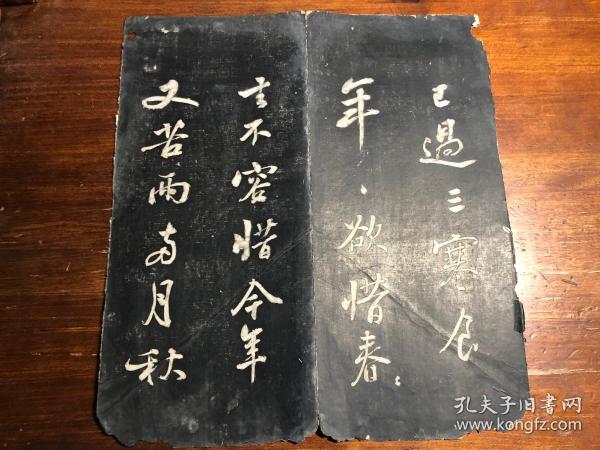 已過三寒食
年〻欲惜春〻
去不容惜今年
又苦雨兩月秋
孔夫子旧書网
www.kongfz.com